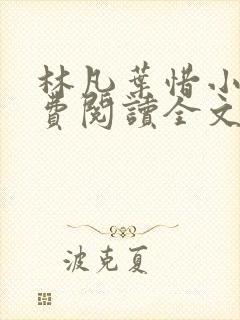 林凡葉惜小
費閱讀全文
波克夏